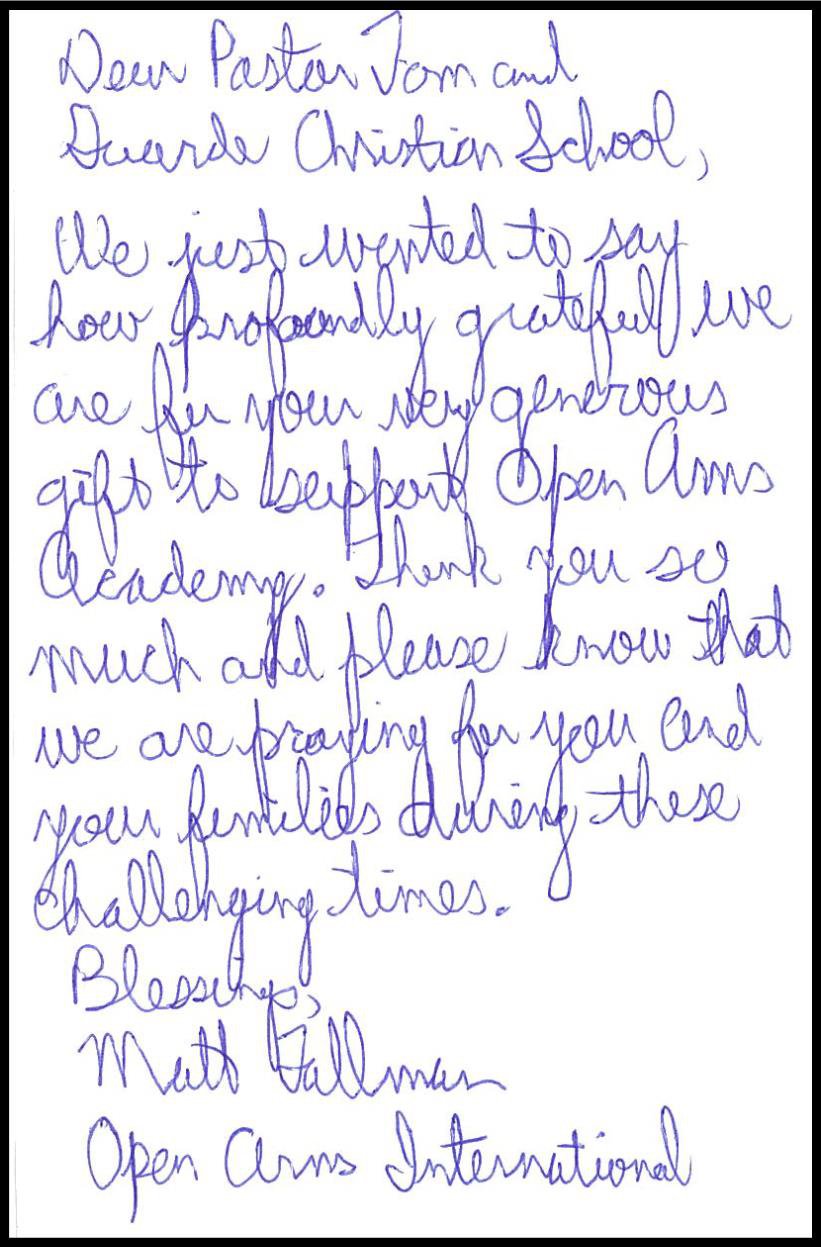 Dear Pastor Tom and
Duarde Christian School,
We just wanted to say
how profoundly grateful we
are for your very generous
gift to support Open Arms
Academy. Thank you so
much and please know that
we are praying for you and
your families during these
challenging times.
Blessings,
Matt Tallman
Open Arms International